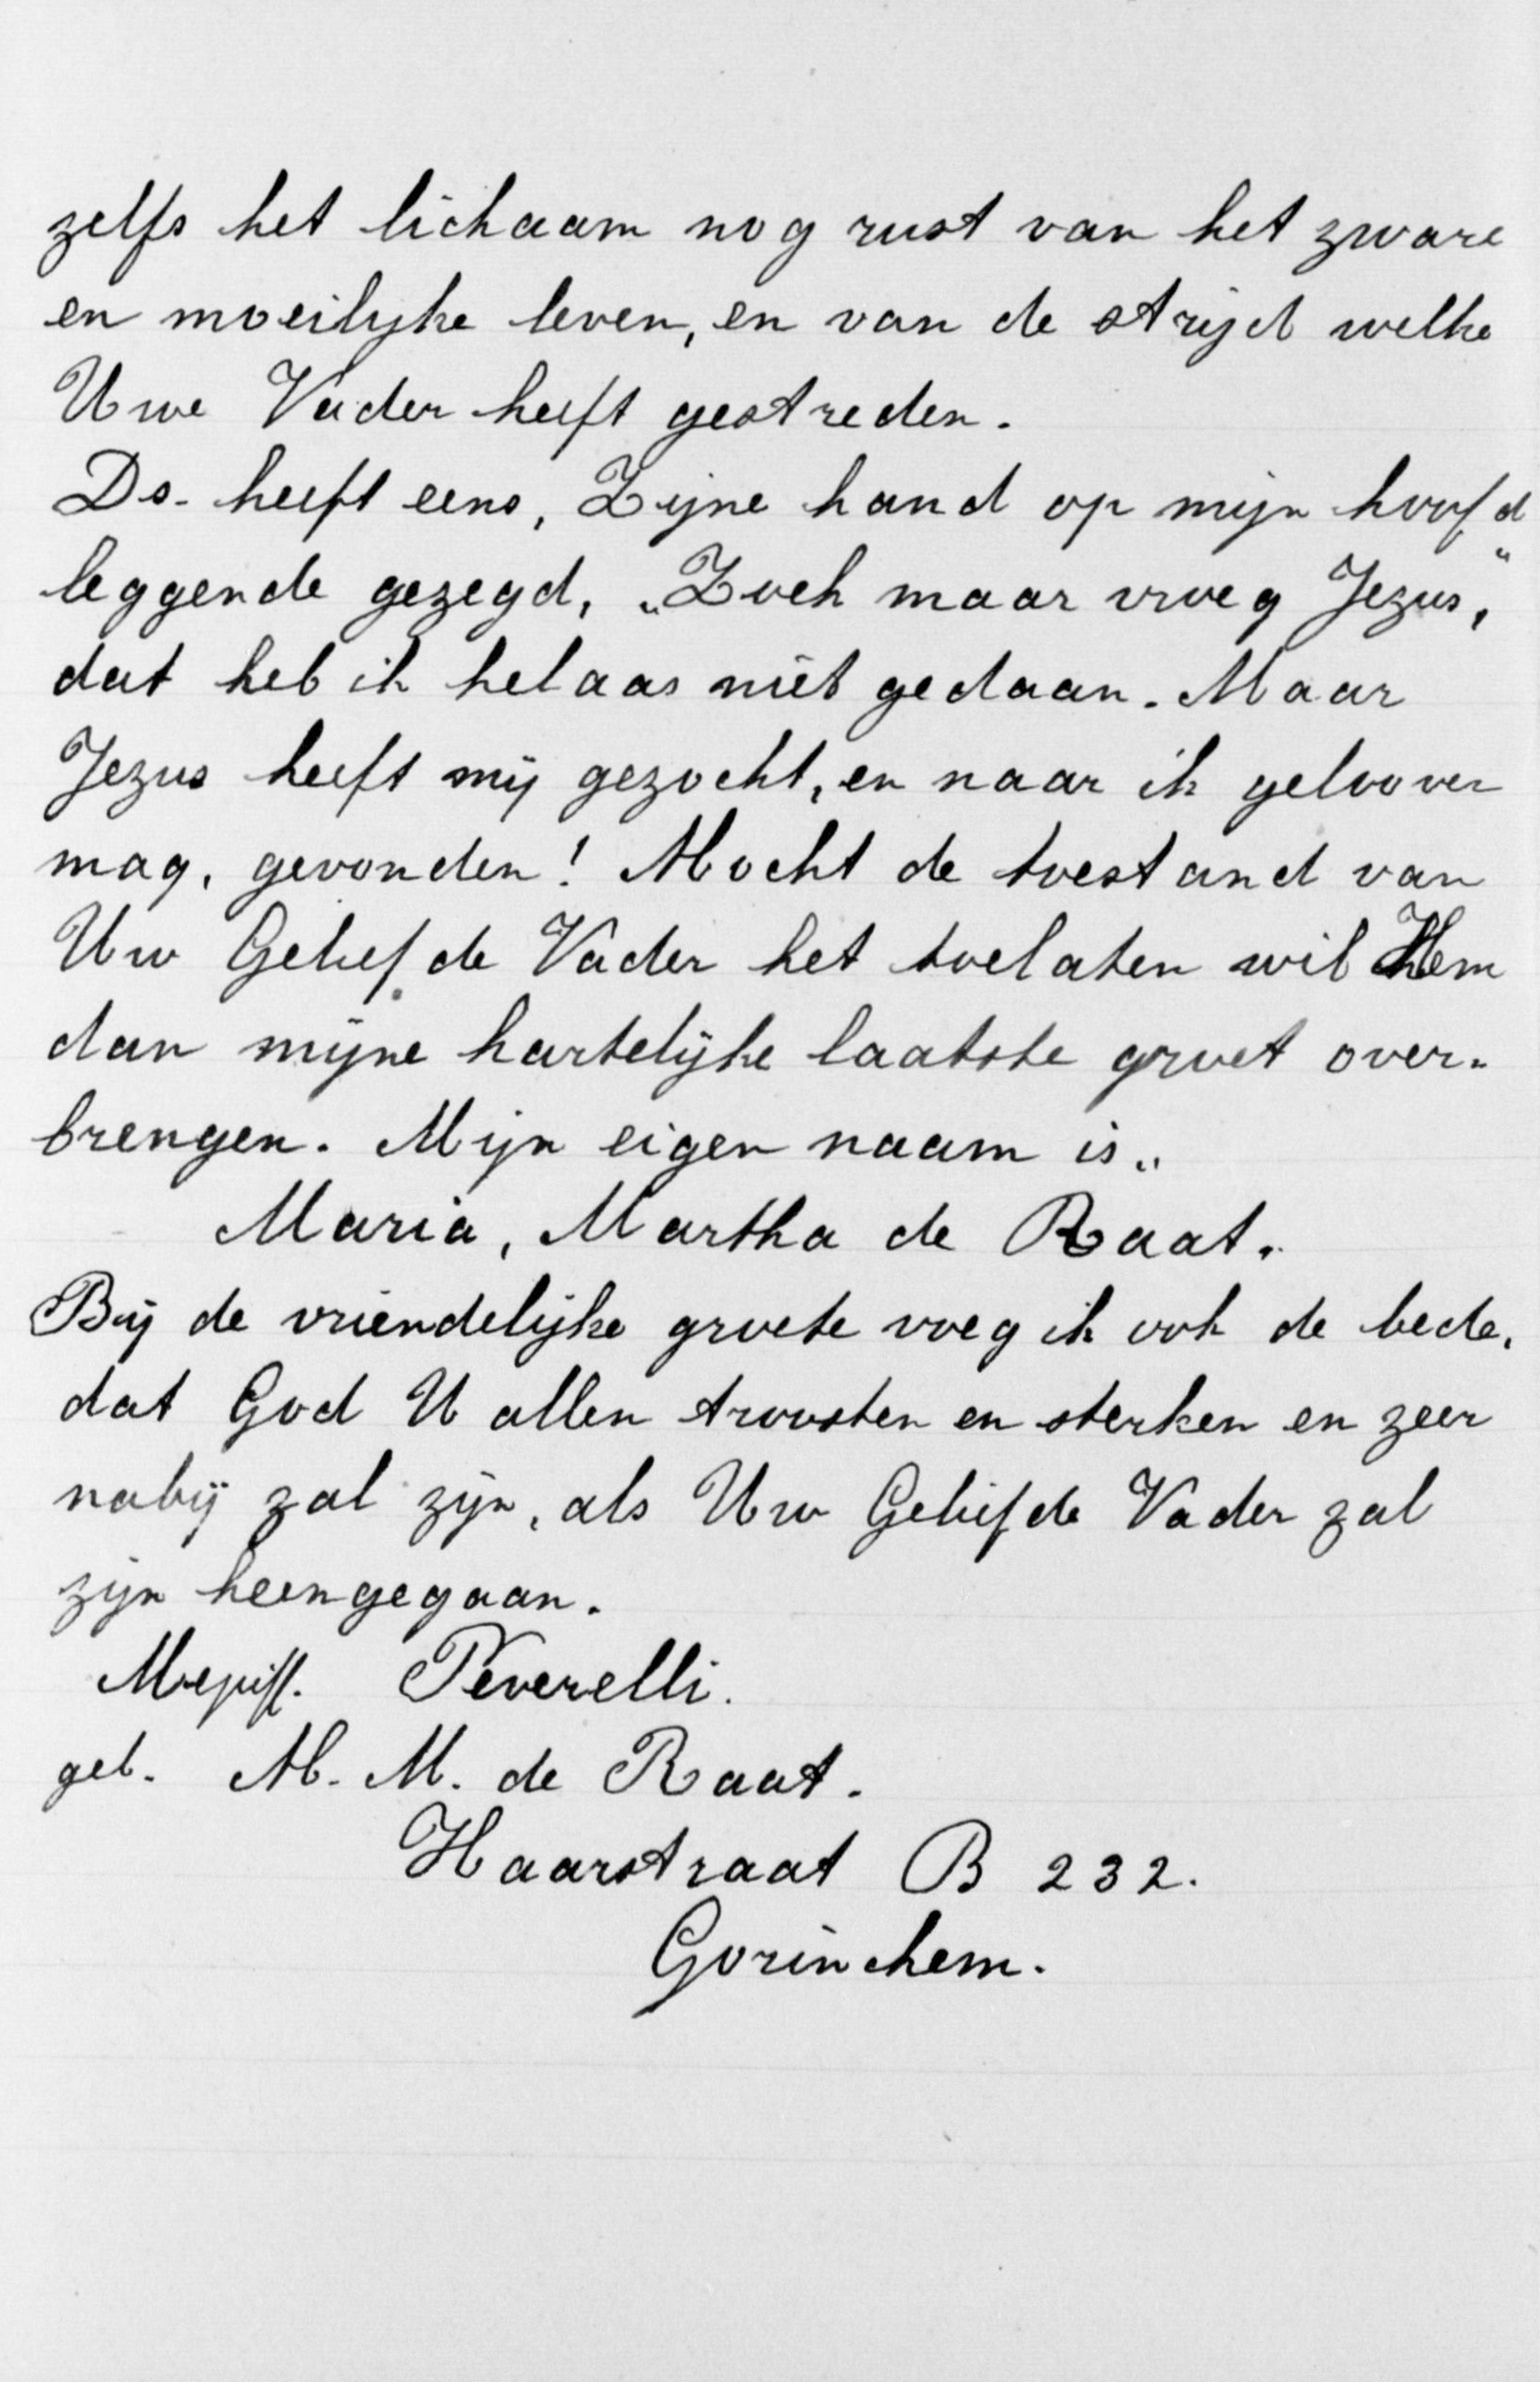 zelfs het lichaam nog rust van het zware
en moeilijke leven, en van de strijd welke
Uwe Vader heeft gestreden.
Ds. heeft eens, Zijne hand op mijn hoofd
leggende gezegd, „Zoek maar vroeg Jezus,"
dat heb ik helaas niet gedaan. Maar
Jezus heeft mij gezocht, en naar ik gelooven
mag, gevonden! Mocht de toestand van
Uw Geliefde Vader het toelaten wil Hem
dan mijne hartelijke laatste groet over-
brengen. Mijn eigen naam is„
Maria, Martha de Raat.
Bij de vriendelijke groete voeg ik ook de bede,
dat God U allen troosten en sterken en zeer
nabij zal zijn, als Uw Geliefde Vader zal
zijn heengegaan.
Mejuff. Peverelli.
geb. M. M. de Raat.
Haarstraat B 232.
Gorinchem.